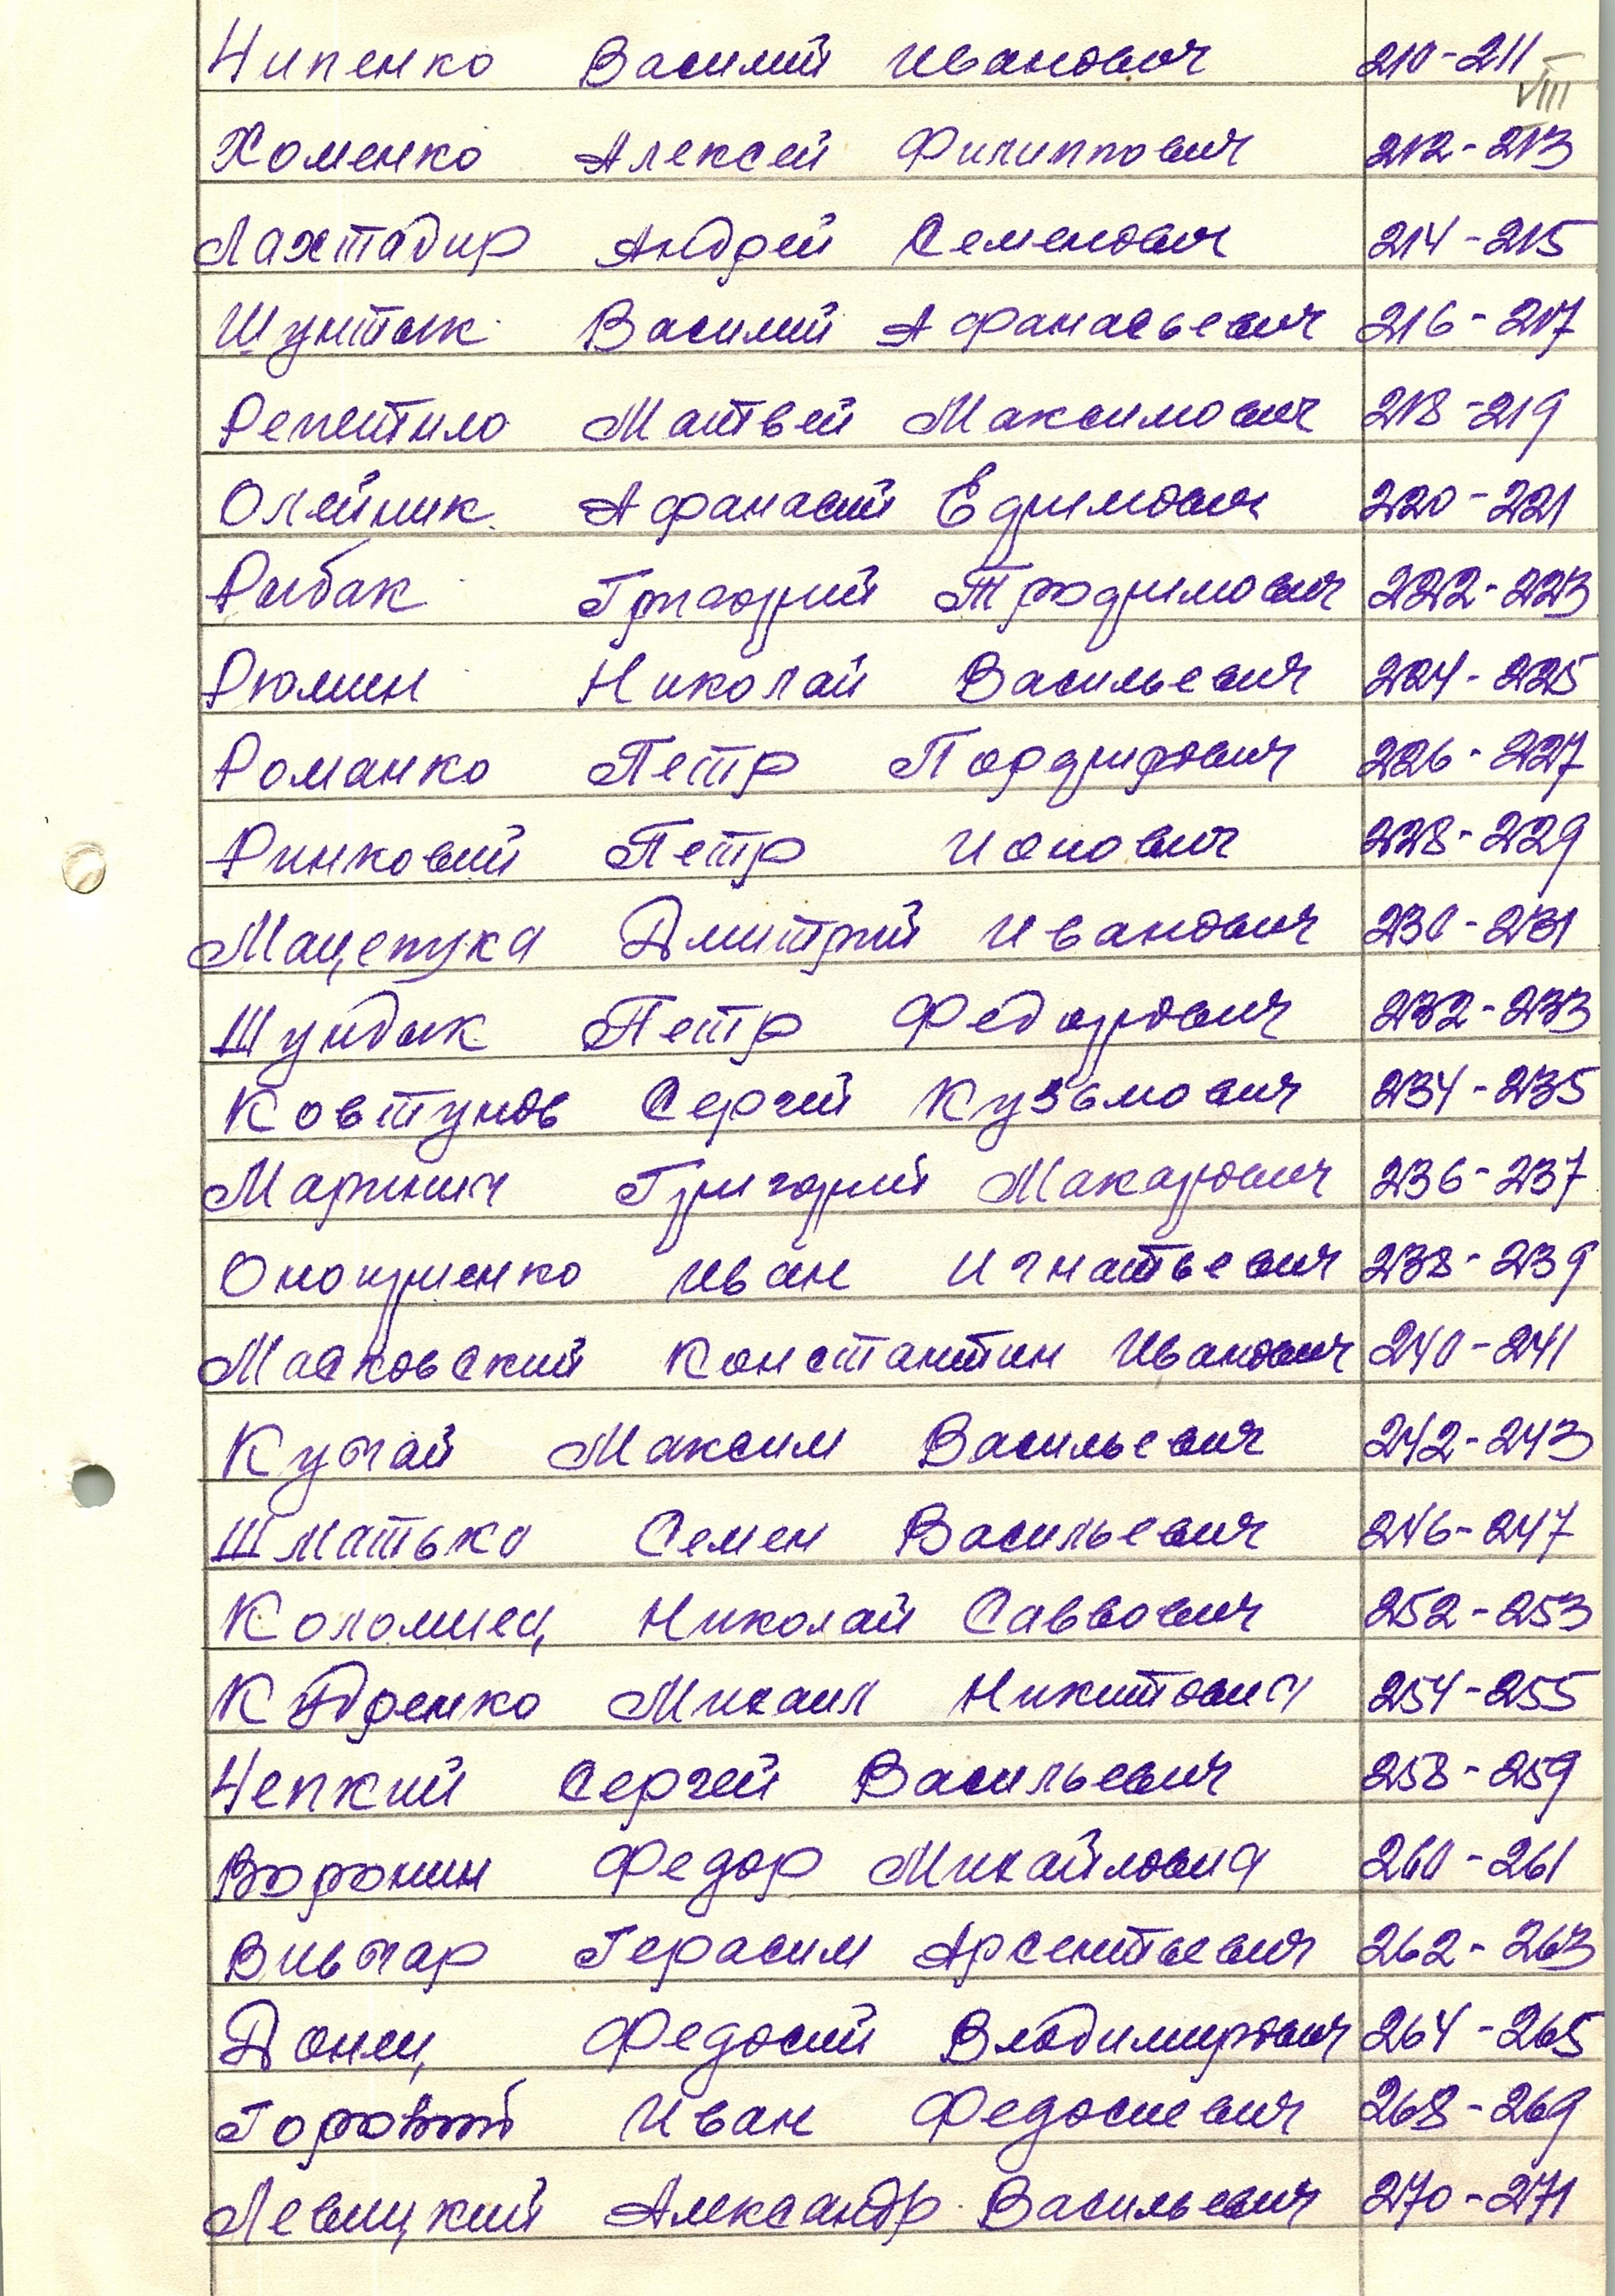 Чипенко Василий Иванович 210-211
VIII
Хоменко Алексей Филиппович 212-213
Лахтадир Андрей Семенович 214-215
Шунтык Василий Афанасьевич 216-217
Репетило Матвей Максимович 218-219
Олейник Афанасий Ефимович 220-221
Рыбак Григорий Трофимович 222-223
Рюмин Николай Васильевич 224-225
Романко Петр Порфирович 226-227
Ринковий Петр Ионович 228-229
Мацепука Дмитрий Иванович 230-231
Шундык Петр Федорович 232-233
Ковтунов Сергей Кузьмович 234-235
Маринич Григорий Макарович 236-237
Оноприенко Иван Игнатьевич 238-239
Масковский Константин Иванович 240-241
Кучай Максим Васильевич 242-243
Шматько Семен Васильевич 246-247
Коломиец Николай Саввович 252-253
Кодренко Михаил Никитович 254-255
Чепкий Сергей Васильевич 258-259
Воронин Федор Михайлович 260-261
Вивчар Герасим Арсентьевич 262-263
Донец Федосий Владимирович 264-265
Горовой Иван Федосиевич 268-269
Левицкий Александр Васильевич 270-271